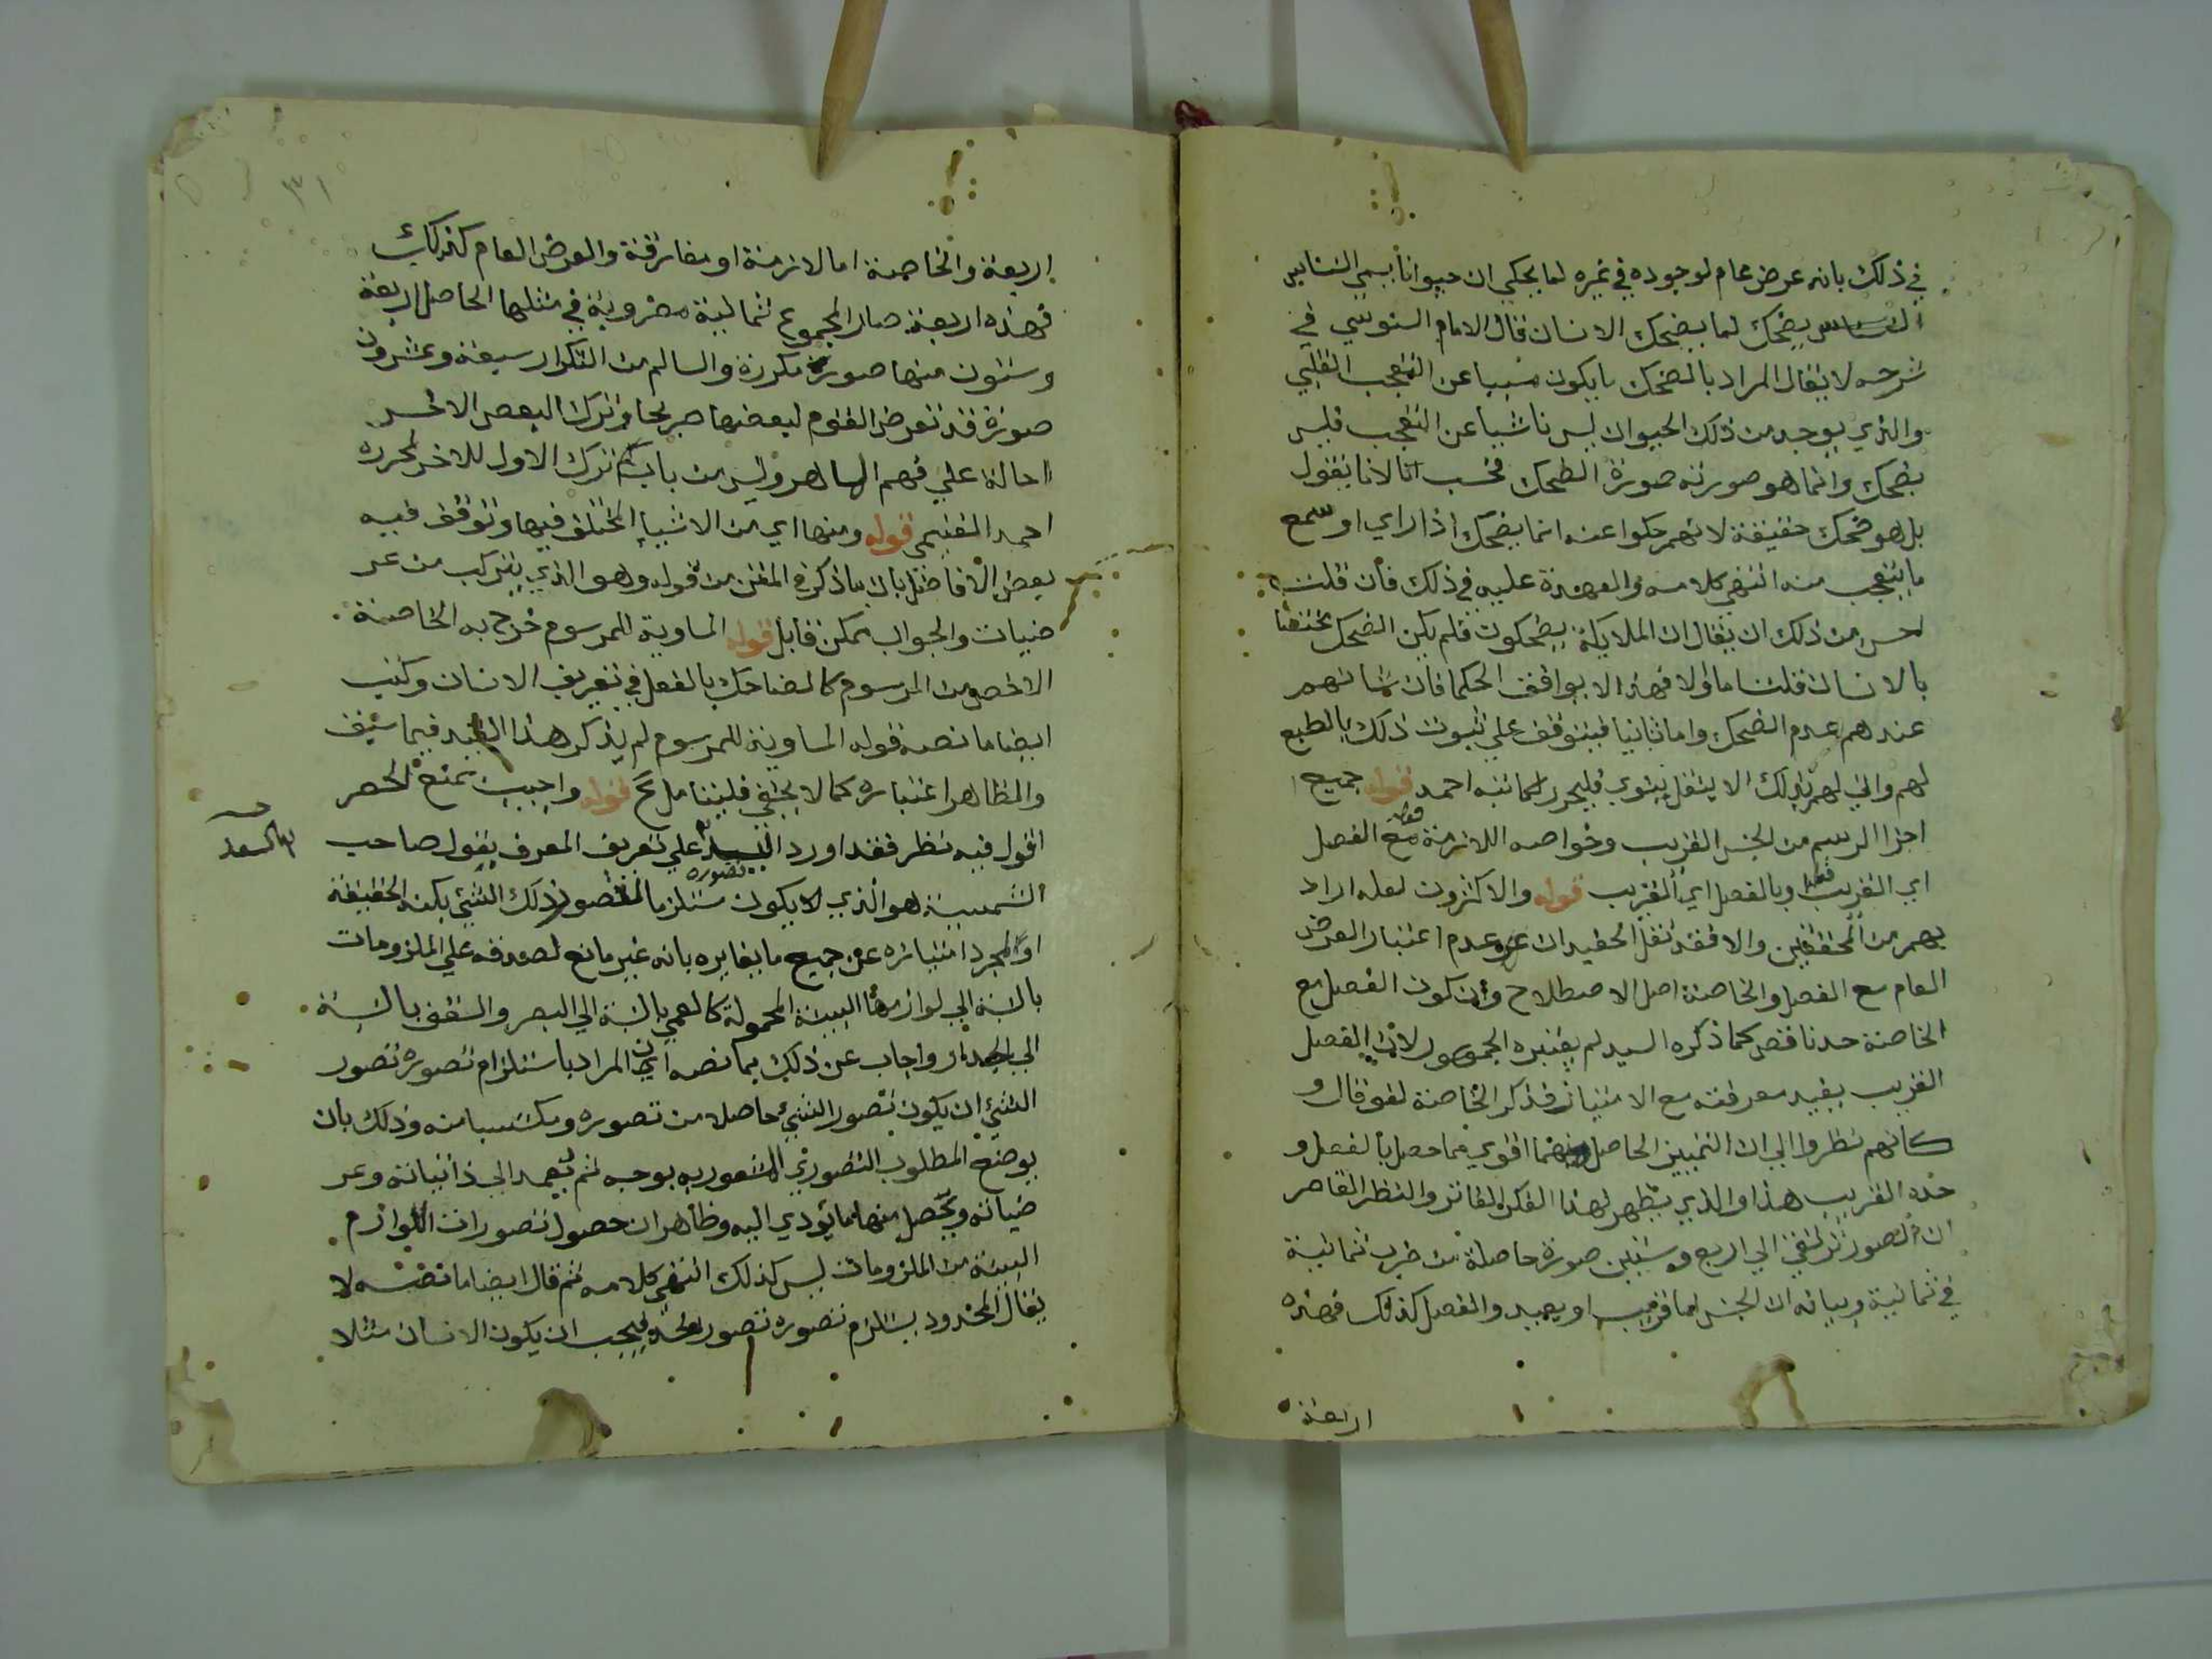 في ذلك بانه عرض عام لوجوده في غيره لما يحكي ان حيوانا يسمي النسناس
يضحك لما يضحك الانسان قال الامام السنوسي في
شرحه لا يقال المراد بالضحك ما يكون مسببا عن التعجب القلبي
والذي يوجد من ذلك الحيوان ليس ناشيا عن التعجب فليس
بضحك وانما هو صورته صورة الضحك فحسب لانا نقول
بل هو ضحك حقيقة لانهم حكوا عنه انما يضحك اذا راي او سمع
ما يتعجب منه انتهي كلامه والعهدة عليه في ذلك فان قلت
احسن من ذلك ان يقال ان الملايكة يضحكون فلم يكن الضحك مختصا
بالانسان قلت اما اولا فهذا لا يوافق الحكما فان شانهم
عندهم عدم الضحك واما ثانيا فيتوقف علي ثبوت ذلك بالطبع
لهم واني لهم بذلك الا بنقل نبوي فليحرر لكاتبه احمد قوله جميع
اجزا الرسم من الجنس القريب وخواصه اللازمة مع الفصل
اي القريب فقط وبالفصل اي القريب قوله والاكثرون لعله اراد
بهم من المحققين والا فقد نقل الحفيد ان عدم اعتبار العرض
العام مع الفصل والخاصة اصل الاصطلاح وان كون الفصل مع
الخاصة حدا ناقص كما ذكره السيد لم يعتبره الجمهور لان الفصل
القريب يفيد معرفته مع الامتياز فذكر الخاصة لغو قال و
كانهم نظروا الي ان التمييز الحاصل منهما اقوي مما حصل بالفصل و
حده القريب هذا والذي يظهر لهذا الفكر الفاتر والنظر القاصر
ان الصور ترتقي الي اربع وستين صورة حاصلة من ضرب ثمانية
في ثمانية وبيانه ان الجنس اما قريب او بعيد والفصل كذلك فهذه
اربعة
٣١
اربعة والخاصة اما لازمة او مفارقة والعرض العام كذلك
فهذه اربعة صار المجموع ثمانية مضروبة في مثلها الحاصل اربعة
وستون منها صورة مكررة والسالم من التكرار سبعة وعشرون
صورة قد تعرض القوم لبعضها صريحا وترك البعض الاخر
احالة علي فهم الماهر وليس من باب كم ترك الاول للاخر لمحرره
احمد الغنيمي قوله ومنها اي من الاشيا المختلف فيها وتوقف فيه
بعض الافاضل بان ما ذكره المتن من قوله وهو الذي يتركب من عر
ضيات والجواب ممكن فتامل قوله المساوية للمرسوم خرج به الخاصة
الاخص من المرسوم كالضاحك بالفعل في تعريف الانسان وكتب
ايضا ما نصه قوله المساوية للمرسوم لم يذكر هذا القيد فيما سبق
والظاهر اعتباره كما لا يخفي فليتامل قوله واجيب بمنع الحصر
اقول فيه نظر فقد اورد السيد علي تعريف المعرف بقول صاحب
السعد
الشمسية هو الذي لا يكون مستلزما لتصور ذلك الشيء بكنه الحقيقة
تصوره
او لمجرد امتيازه عن جميع ما يغايره بانه غير مانع لصدقه علي الملزومات
بالنسبة الي لوازمها البينة المحمولة كالعمي بالنسبة الي البصر والسقف بالنسبة
الي الجدار واجاب عن ذلك بما نصه ان المراد باستلزام تصوره تصور
الشيء ان يكون تصور الشيء حاصلا من تصوره ومكتسبا منه وذلك بان
يوضع المطلوب التصوري المشعور به بوجه ثم يعمد الي ذاتياته وعر
ضياته ويحصل منها ما يؤدي اليه وظاهر ان حصول تصورات اللوازم
البينة من الملزومات ليس كذلك انتهي كلامه ثم قال ايضا ما نصه لا
يقال المحدود يستلزم تصوره تصور الحد فيجب ان يكون الانسان مثلا